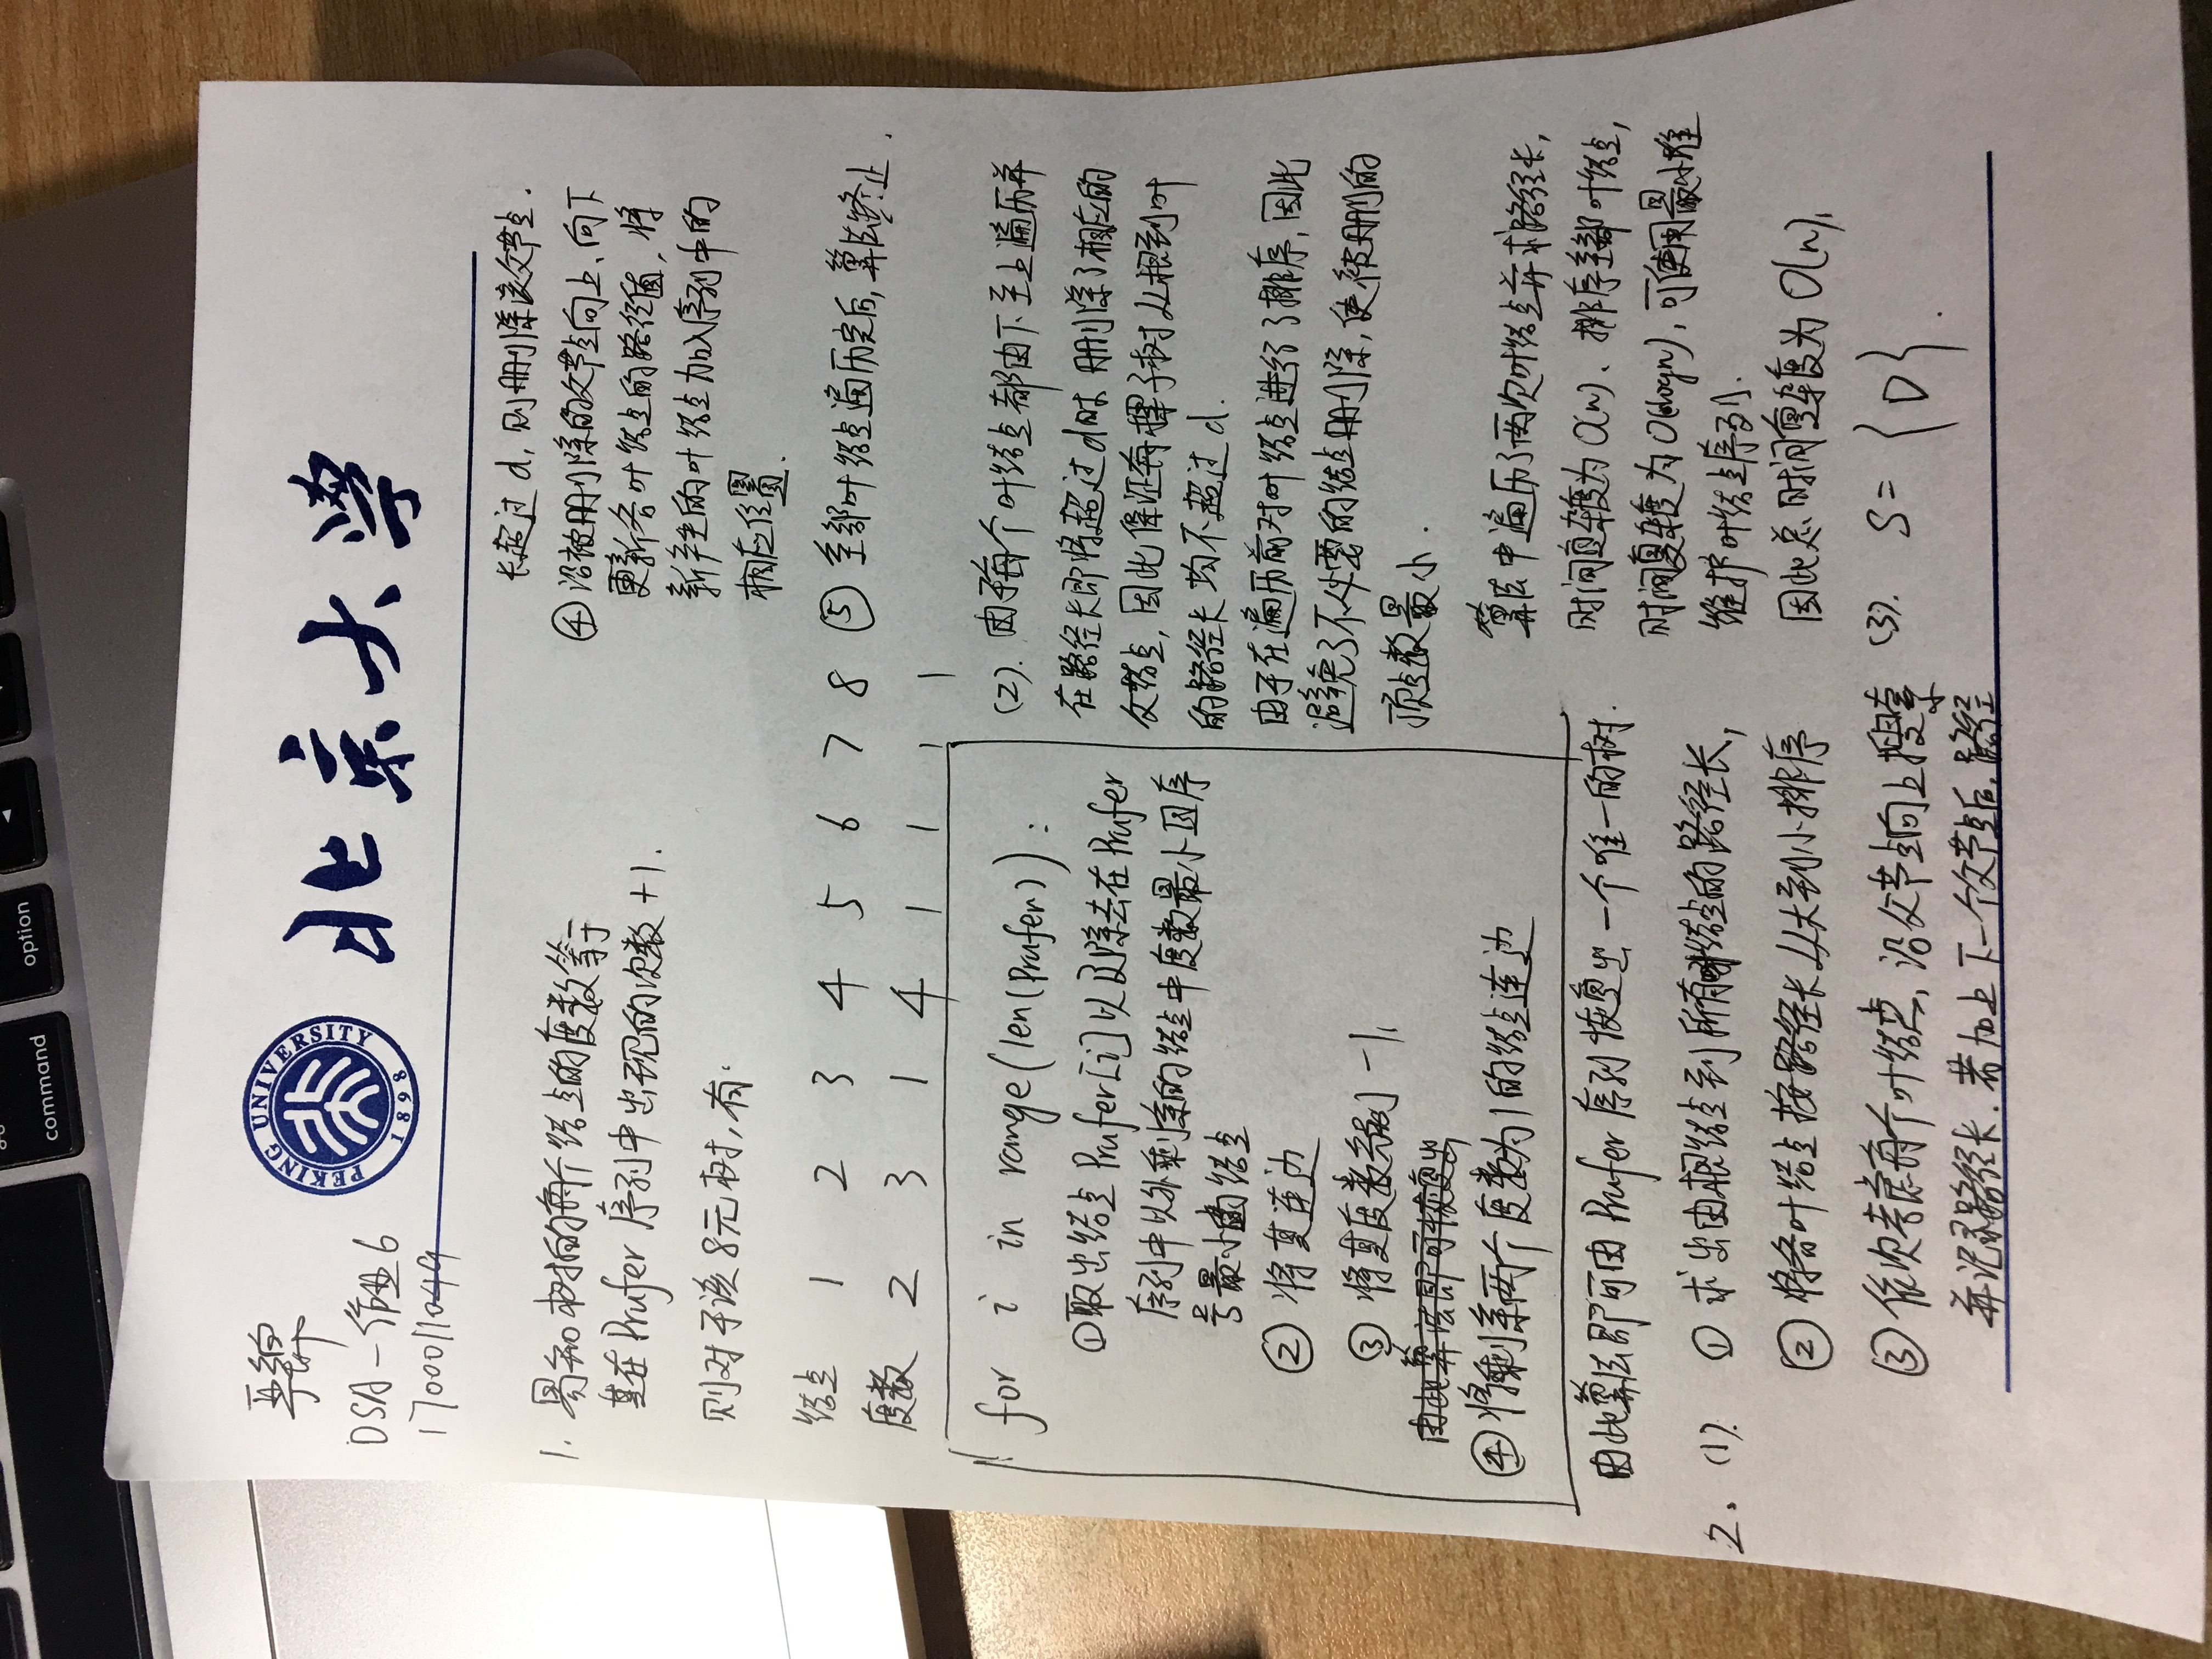 command
option
DSA-作业6
1700011049
PEKING UNIVERSITY
1898
北京大学
1. 易知树的每个结点的度数等于
其在Prufer序列中出现的次数+1.
则对于该8元树,有:
结点 1 2 3 4 5 6 7 8
度数 2 3 1 4 1 1 1 1
for i in range(len(Prufer)):
①取出结点Prufer[i]以及除去在Prufer
序列中以外剩余的结点中度数最小且序
号最小的结点
② 将其连边
③ 将其度数分别-1,
由此算法即可恢复出
④将剩余两个度数为1的结点连边
由此算法即可由Prufer序列恢复出一个唯一的树.
2. (1). ① 求出由根结点到所有叶结点的路径长,
② 将各叶结点按路径长从大到小排序
③ 依次考虑每个叶结点,沿父节点向上搜索
并记录路径长.若加上下一个父节点后,路径
长超过d,则删除该父节点.
④ 沿被删除的父节点向上、向下
更新各叶结点的路径值,将
新产生的叶结点加入序列中的
相应位置.
⑤ 全部叶结点遍历完后,算法终止.
(2). 由于每个叶结点都由下至上遍历并
在路径长即将超过d时删除了相应的
父结点,因此保证每棵子树从根到叶
的路径长均不超过d.
由于在遍历前对叶结点进行了排序,因此
避免了不必要的结点删除,使被删的
顶点数最小.
算法中遍历了两次叶结点并求路径长,
时间复杂度为O(n)、排序全部叶结点,
时间复杂度为O(logn),可使用最小堆
维护叶结点序列.
因此总时间复杂度为O(n),
(3). S={D}.